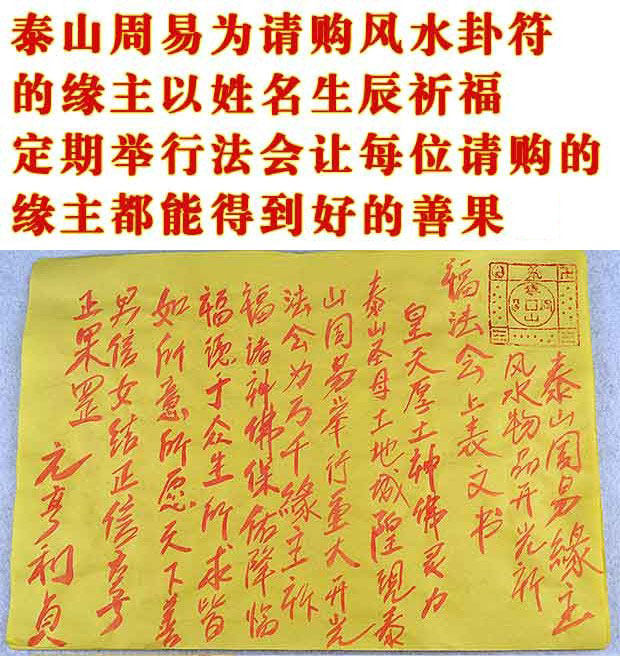 泰山周易为请购风水卦符
的缘主以姓名生辰祈福
定期举行法会让每位请购的
缘主都能得到好的善果
泰山周易缘主
风水物品开光祈
福法会上表文书
皇天厚土神佛灵力
泰山圣母土地城隍现泰
山周易举行重大开光
法会为万千緣主祈
福诸神佛保佑降临
福德于众生所求皆
如所意所愿天下善
男信女结正信善
正果罡
元亨利貞